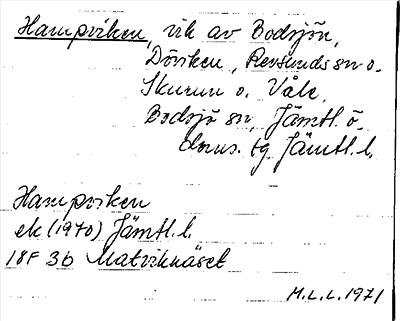 Hampviken, vik av Bodsjön,
Döviken, Revsunds sn o.
Skurun o. Våle,
Bodsjö sn, Jämtl. ö.
doms. tg. Jämtl. l.
Hampviken
ek (1970) Jämtl. l.
18F 3b Matviknäset
M.L.L. 1971